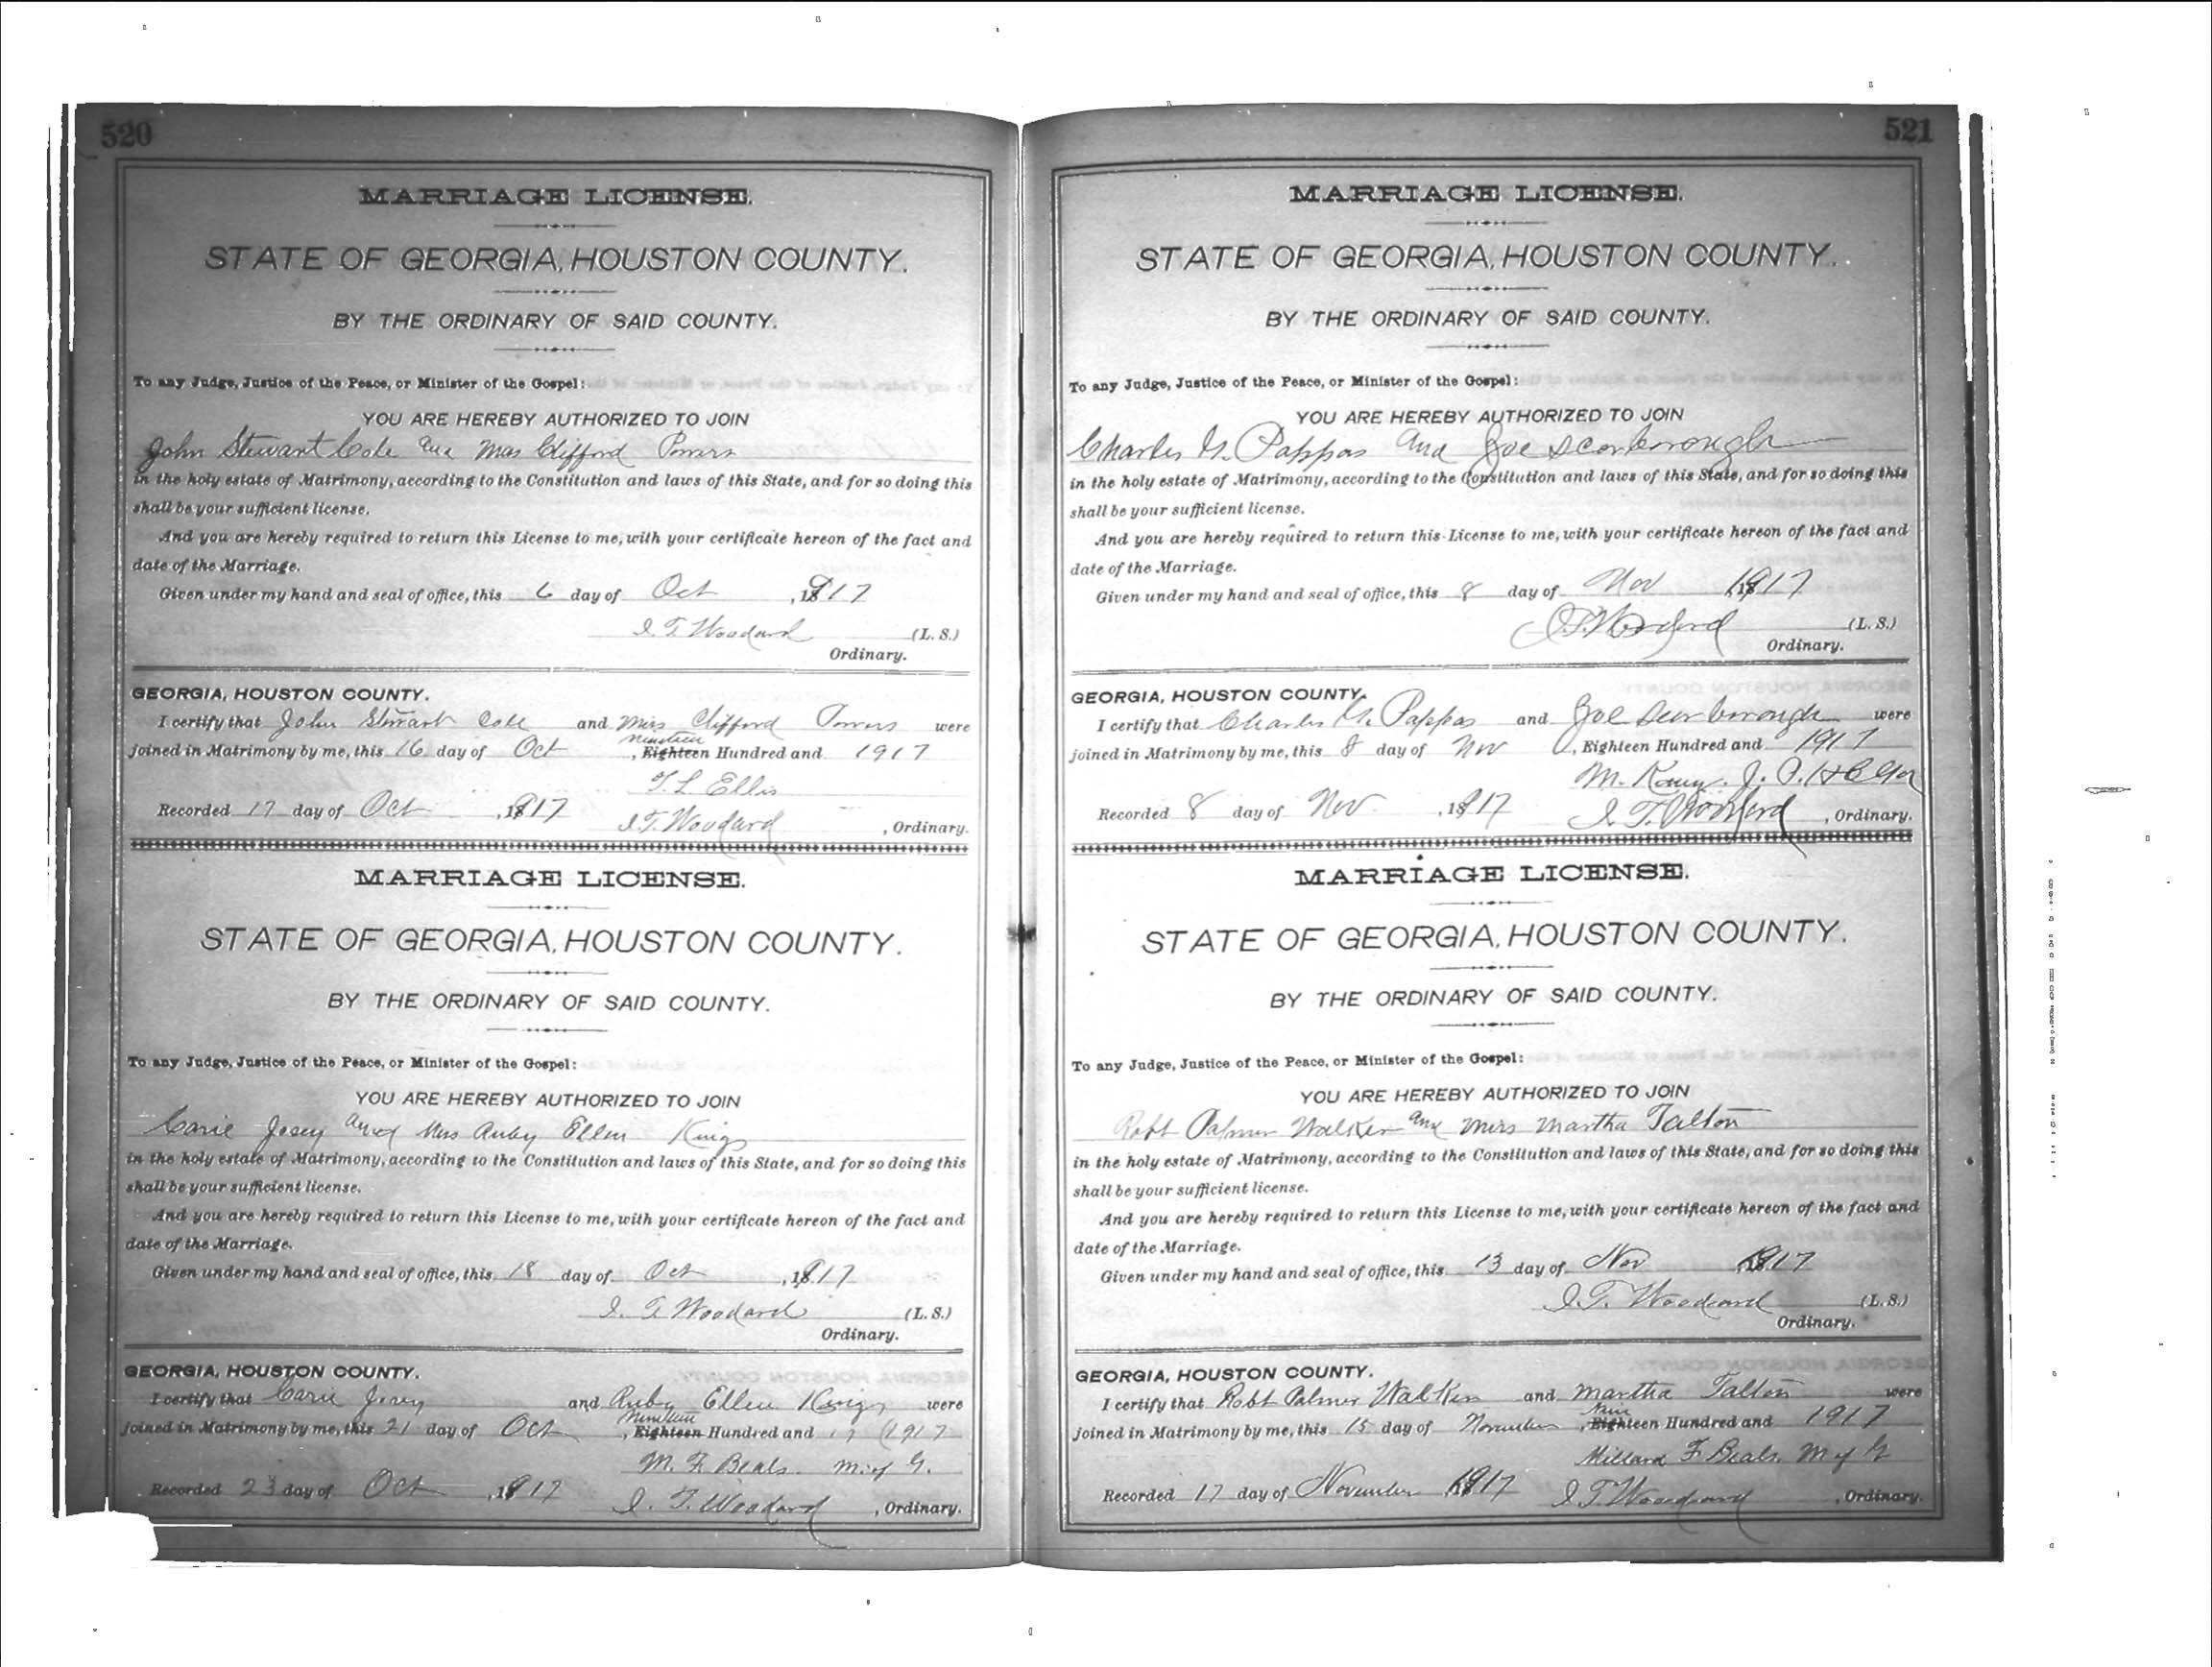 520
MARRIAGE LICENSE.
STATE OF GEORGIA, HOUSTON COUNTY.
BY THE ORDINARY OF SAID COUNTY.
To any Judge, Justice of the Peace, or Minister of the Gospel:
YOU ARE HEREBY AUTHORIZED TO JOIN
John Stewart Cole and Miss Clifford Powers
in the holy estate of Matrimony, according to the Constitution and laws of this State, and for so doing this
shall be your sufficient license.
And you are hereby required to return this License to me, with your certificate hereon of the fact and
date of the Marriage.
Given under my hand and seal of office, this 6 day of Oct , 1917
I. T. Woodard (L. S.)
Ordinary.
GEORGIA, HOUSTON COUNTY.
I certify that John Stewart Cole and Miss Clifford Powers were
nineteen
joined in Matrimony by me, this 16 day of Oct , Eighteen Hundred and 1917
T. L. Ellis
Recorded 17 day of Oct , 1917 I. T. Woodard , Ordinary.
MARRIAGE LICENSE.
STATE OF GEORGIA, HOUSTON COUNTY.
BY THE ORDINARY OF SAID COUNTY.
To any Judge, Justice of the Peace, or Minister of the Gospel:
YOU ARE HEREBY AUTHORIZED TO JOIN
Carie Josey and Mrs Ruby Ellen Kings
in the holy estate of Matrimony, according to the Constitution and laws of this State, and for so doing this
shall be your sufficient license.
And you are hereby required to return this License to me, with your certificate hereon of the fact and
date of the Marriage.
Given under my hand and seal of office, this 18 day of Oct , 1917
I. T. Woodard (L. S.)
Ordinary.
GEORGIA, HOUSTON COUNTY.
I certify that Carie Josey and Ruby Ellen Kings were
Nineteen
joined in Matrimony by me, this 21 day of Oct , Eighteen Hundred and 17 (1917
M. F. Beals. M. of G.
Recorded 23 day of Oct , 1917 I. T. Woodard , Ordinary.
521
MARRIAGE LICENSE.
STATE OF GEORGIA, HOUSTON COUNTY.
BY THE ORDINARY OF SAID COUNTY.
To any Judge, Justice of the Peace, or Minister of the Gospel:
YOU ARE HEREBY AUTHORIZED TO JOIN
Charles G. Pappas and Zoe Scarborough
in the holy estate of Matrimony, according to the Constitution and laws of this State, and for so doing this
shall be your sufficient license.
And you are hereby required to return this License to me, with your certificate hereon of the fact and
date of the Marriage.
Given under my hand and seal of office, this 8 day of Nov 1917
I. T. Woodard (L. S.)
Ordinary.
GEORGIA, HOUSTON COUNTY.
I certify that Charles G. Pappas and Zoe Scarborough were
joined in Matrimony by me, this 8 day of Nov , Eighteen Hundred and 1917
M. J. P. H C Ga
Recorded 8 day of Nov , 1917 I. T. Woodard , Ordinary.
MARRIAGE LICENSE.
STATE OF GEORGIA, HOUSTON COUNTY.
BY THE ORDINARY OF SAID COUNTY.
To any Judge, Justice of the Peace, or Minister of the Gospel:
YOU ARE HEREBY AUTHORIZED TO JOIN
Robt Palmer Walker and Miss Martha Talton
in the holy estate of Matrimony, according to the Constitution and laws of this State, and for so doing this
shall be your sufficient license.
And you are hereby required to return this License to me, with your certificate hereon of the fact and
date of the Marriage.
Given under my hand and seal of office, this 13 day of Nov 1917
I. T. Woodard (L. S.)
Ordinary.
GEORGIA, HOUSTON COUNTY.
I certify that Robt Palmer Walker and Martha Talton were
Nine
joined in Matrimony by me, this 15 day of November , Eighteen Hundred and 1917
Millard F. Beals, M of G
Recorded 17 day of November 1917 I. T. Woodard , Ordinary.